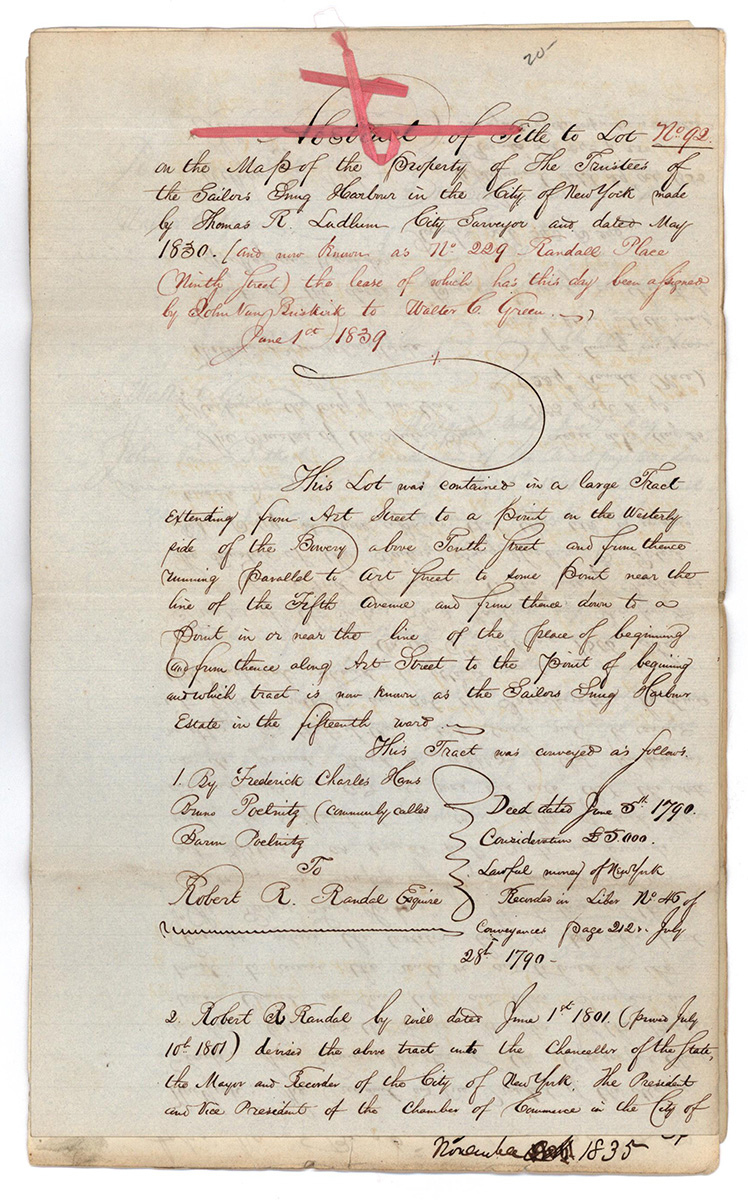 20-
Abstract of Title to Lot No 92.
on the Map of the property of The Trustees of
the Sailor's Snug Harbour in the City of New York made
by Thomas R. Ludlum City Surveyor and dated May
1830. (and now known as No 229 Randall Place
(Ninth Street) the lease of which has this day been assigned
by John Van Buskirk to Walter C. Green.
June 1st 1839
This Lot was contained in a large Tract
Extending from Art Street to a point on the Westerly
side of the Bowery above Tenth Street and from thence
running parallel to Art Street to some point near the
line of the Fifth Avenue and from thence down to a
point in or near the line of the place of beginning
and from thence along Art Street to the point of begining
and which tract is now known as the Sailors Snug Harbour
Estate in the fifteenth ward
This Tract was conveyed as follows.
1. By Frederick Charles Hans
Bruno Poelnitz (commonly called
Baron Poelnitz
To
Robert R. Randal Esquire
Deed dated June 5th 1790.
Consideration £5.000.
Lawful money of New York
Recorded in Liber No 46 of
Conveyances page 212. July
28th 1790-
2. Robert R Randal by will dated June 1st 1801. (proved July
10th 1801) devised the above tract unto the Chancellor of the State,
the Mayor and Recorder of the City of New York. The President
and Vice President of the Chamber of Commerce in the City of
November 1835